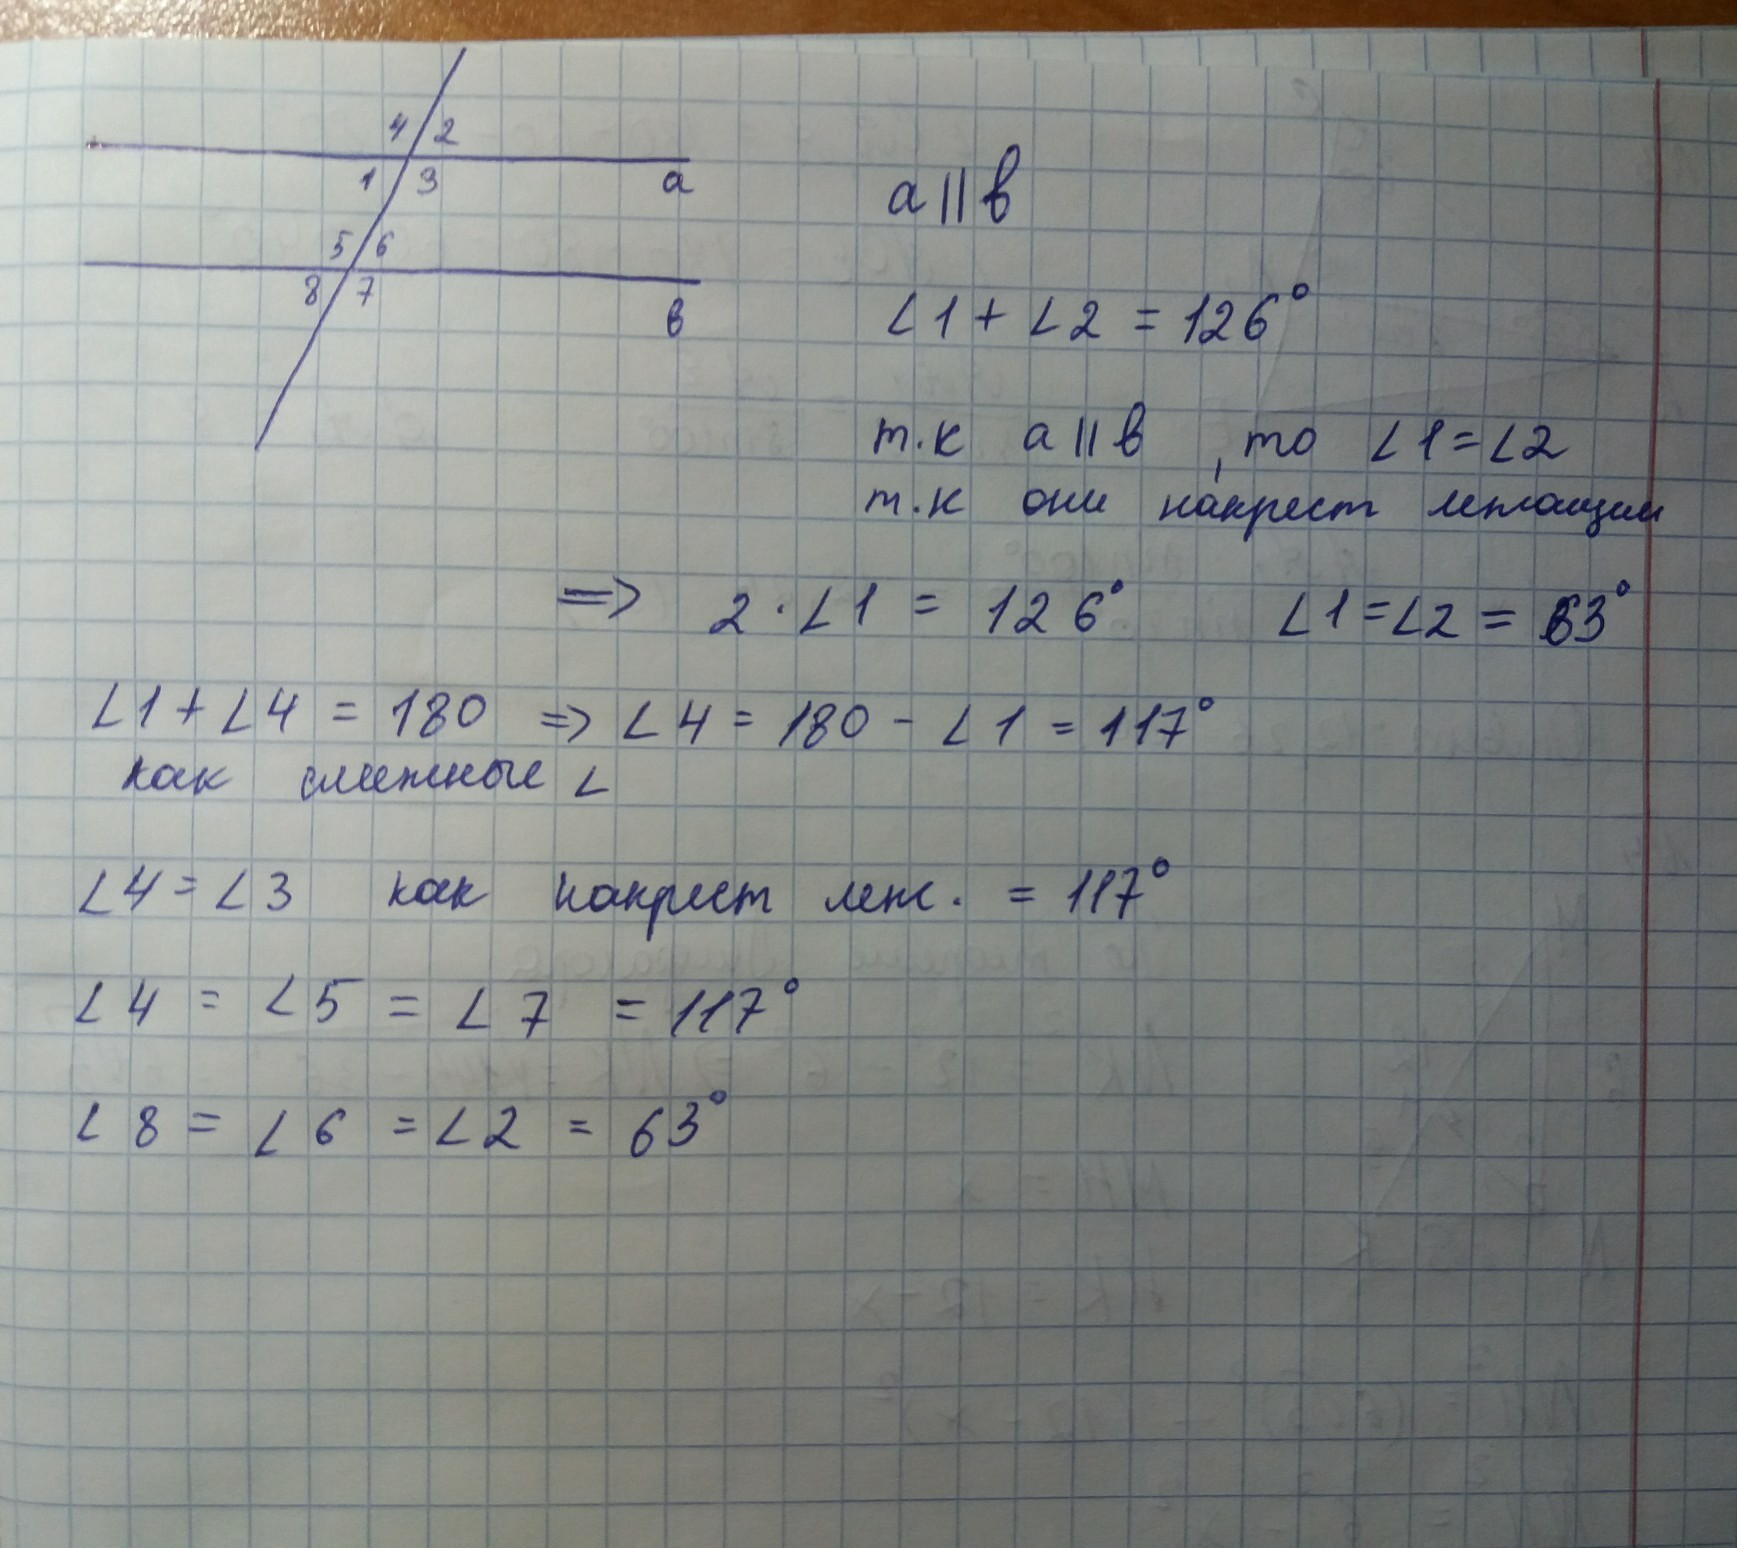 4 2
1 3 a
5 6
8 7 в
a || в
∠1 + ∠2 = 126°
т.к a || в , то ∠1 = ∠2
т.к они накрест лежащии
=> 2 · ∠1 = 126° ∠1 = ∠2 = 63°
∠1 + ∠4 = 180 => ∠4 = 180 - ∠1 = 117°
как смежные ∠
∠4 = ∠3 как накрест леж. = 117°
∠4 = ∠5 = ∠7 = 117°
∠8 = ∠6 = ∠2 = 63°